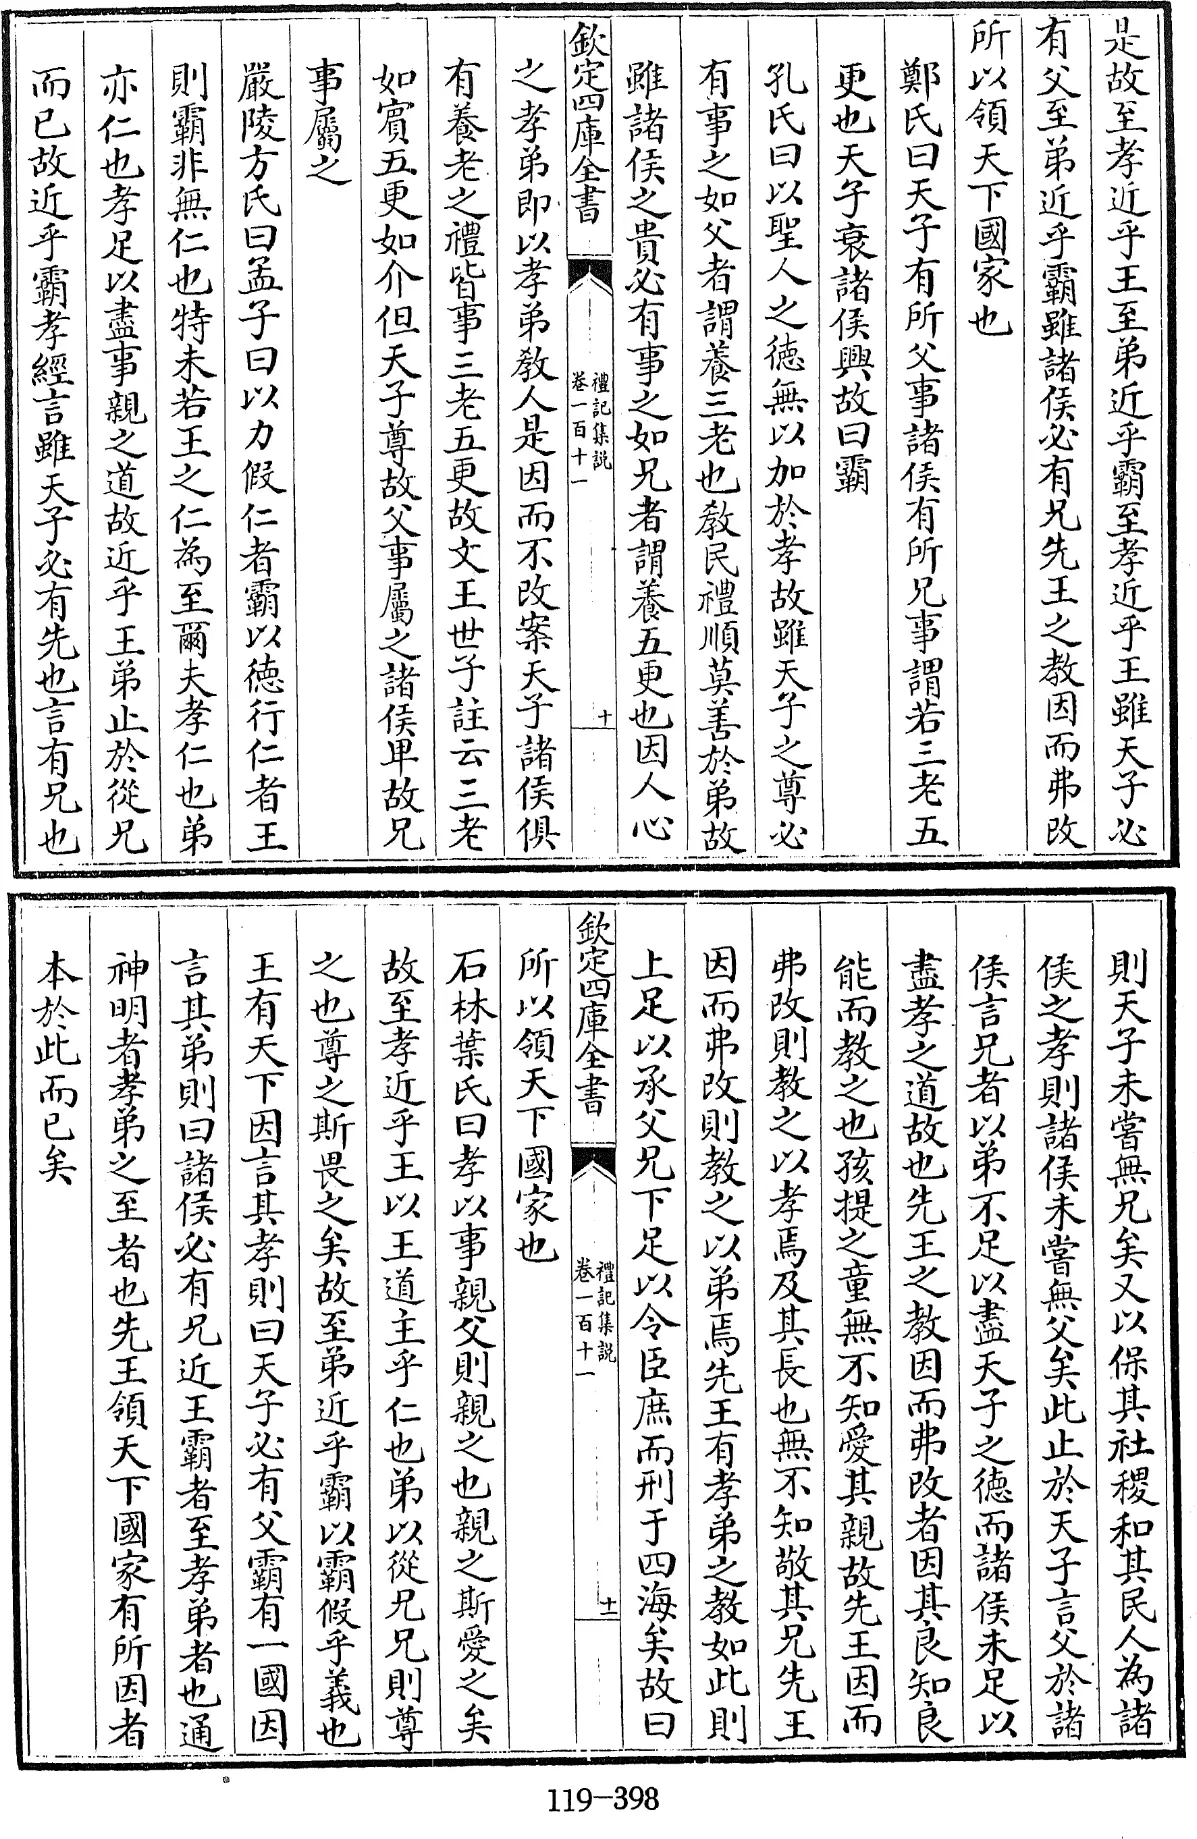 是故至孝近乎王至弟近乎霸至孝近乎王雖天子必
有父至弟近乎霸雖諸侯必有兄先王之教因而弗改
所以領天下國家也
鄭氏曰天子有所父事諸侯有所兄事謂若三老五
更也天子衰諸侯興故曰霸
孔氏曰以聖人之徳無以加於孝故雖天子之尊必
有事之如父者謂養三老也教民禮順莫善於弟故
雖諸侯之貴必有事之如兄者謂養五更也因人心
欽定四庫全書
禮記集説
卷一百十一
十
之孝弟即以孝弟教人是因而不改案天子諸侯俱
有養老之禮皆事三老五更故文王世子註云三老
如賓五更如介但天子尊故父事屬之諸侯卑故兄
事屬之
嚴陵方氏曰孟子曰以力假仁者霸以徳行仁者王
則霸非無仁也特未若王之仁為至爾夫孝仁也弟
亦仁也孝足以盡事親之道故近乎王弟止於從兄
而已故近乎霸孝經言雖天子必有先也言有兄也
則天子未嘗無兄矣又以保其社稷和其民人為諸
侯之孝則諸侯未嘗無父矣此止於天子言父於諸
侯言兄者以弟不足以盡天子之徳而諸侯未足以
盡孝之道故也先王之教因而弗改者因其良知良
能而教之也孩提之童無不知愛其親故先王因而
弗改則教之以孝焉及其長也無不知敬其兄先王
因而弗改則教之以弟焉先王有孝弟之教如此則
上足以承父兄下足以令臣庶而刑于四海矣故曰
欽定四庫全書
禮記集説
卷一百十一
十一
所以領天下國家也
石林葉氏曰孝以事親父則親之也親之斯愛之矣
故至孝近乎王以王道主乎仁也弟以從兄兄則尊
之也尊之斯畏之矣故至弟近乎霸以霸假乎義也
王有天下因言其孝則曰天子必有父霸有一國因
言其弟則曰諸侯必有兄近王霸者至孝弟者也通
神明者孝弟之至者也先王領天下國家有所因者
本於此而已矣
119-398